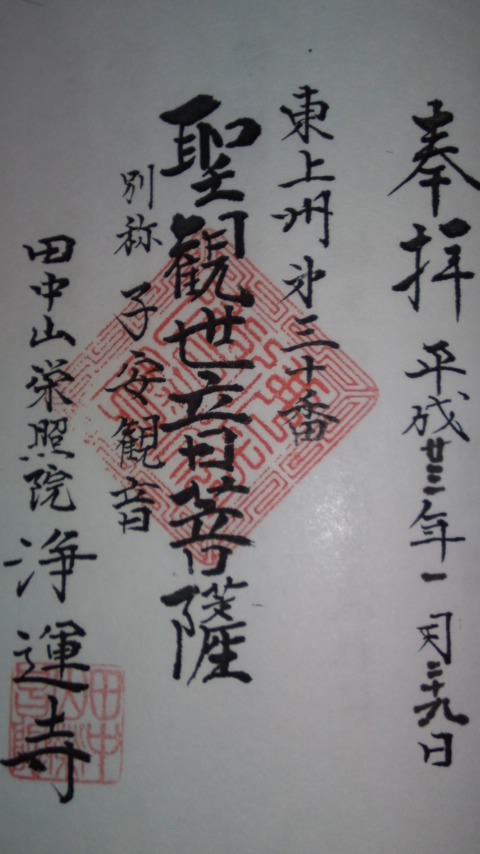 奉拝 平成廿三年一月二十九日
東上州第三十番
聖観世音菩薩
別称 子安観音
田中山栄照院 浄運寺